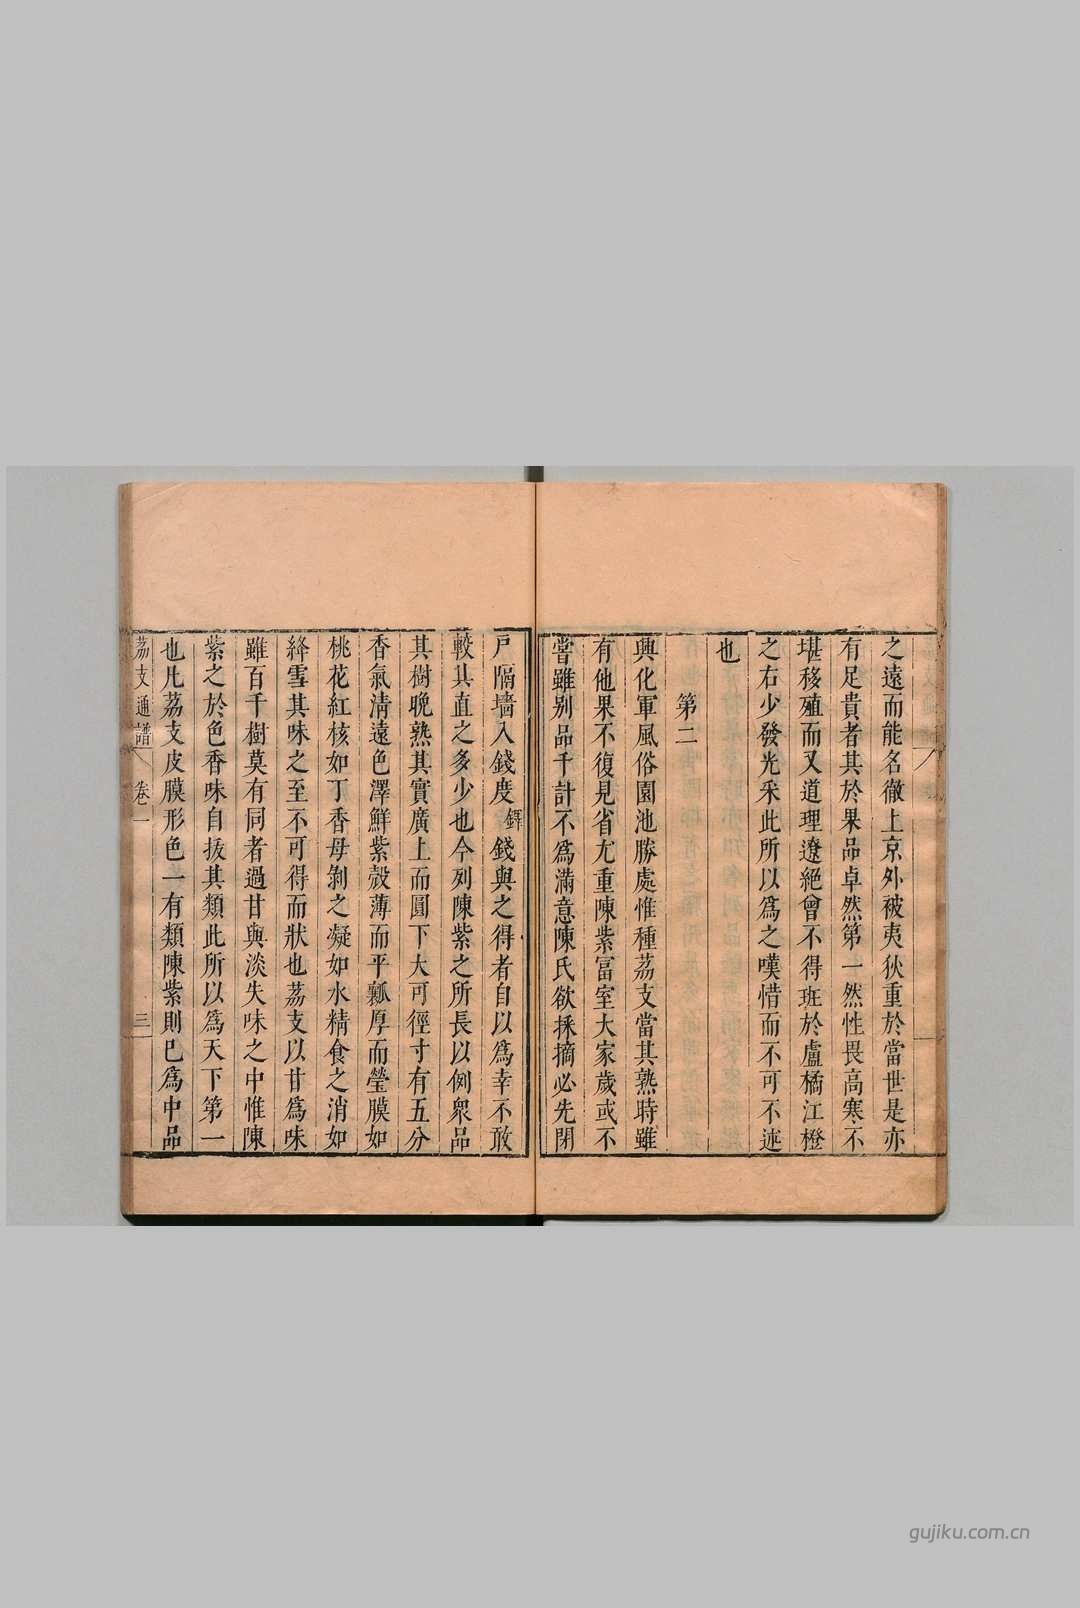 之遠而能名徹上京外被夷狄重於當世是亦
有足貴者其於果品卓然第一然性畏高寒不
堪移殖而又道理遼絕曾不得班於盧橘江橙
之右少發光采此所以為之嘆惜而不可不述
也
第二
興化軍風俗園池勝處惟種荔支當其熟時雖
有他果不復見省尤重陳紫富室大家歲或不
嘗雖别品千計不為滿意陳氏欲採摘必先閉
戶隔墻入錢度錢與之得者自以為幸不敢
較其直之多少也今列陳紫之所長以例衆品
其樹晚熟其實廣上而圓下大可徑寸有五分
香氣清遠色澤鮮紫殼薄而平瓤厚而瑩膜如
桃花紅核如丁香母剝之凝如水精食之消如
絳雪其味之至不可得而狀也荔支以甘為味
雖百千樹莫有同者過甘與淡失味之中惟陳
紫之於色香味自拔其類此所以為天下第一
也凡荔支皮膜形色一有類陳紫則已為中品
荔支通譜 卷一 三
gujiku.com.cn